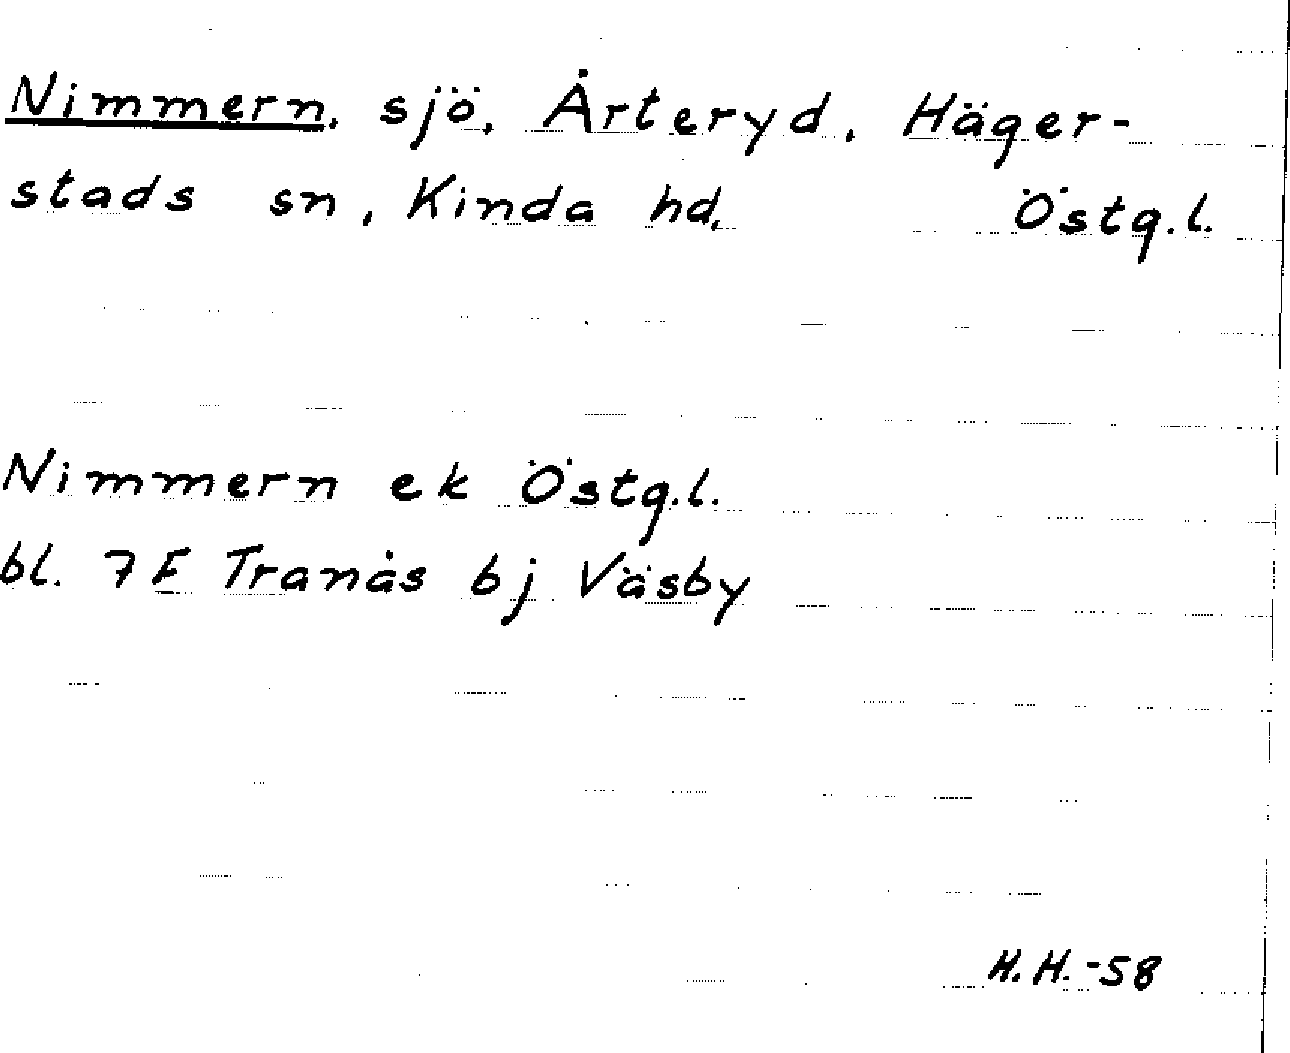 Nimmern, sjö, Årteryd, Häger-
stads sn, Kinda hd, Östg.l.
Nimmern ek Östg.l.
bl. 7F Tranås bj Väsby
H.H.-58